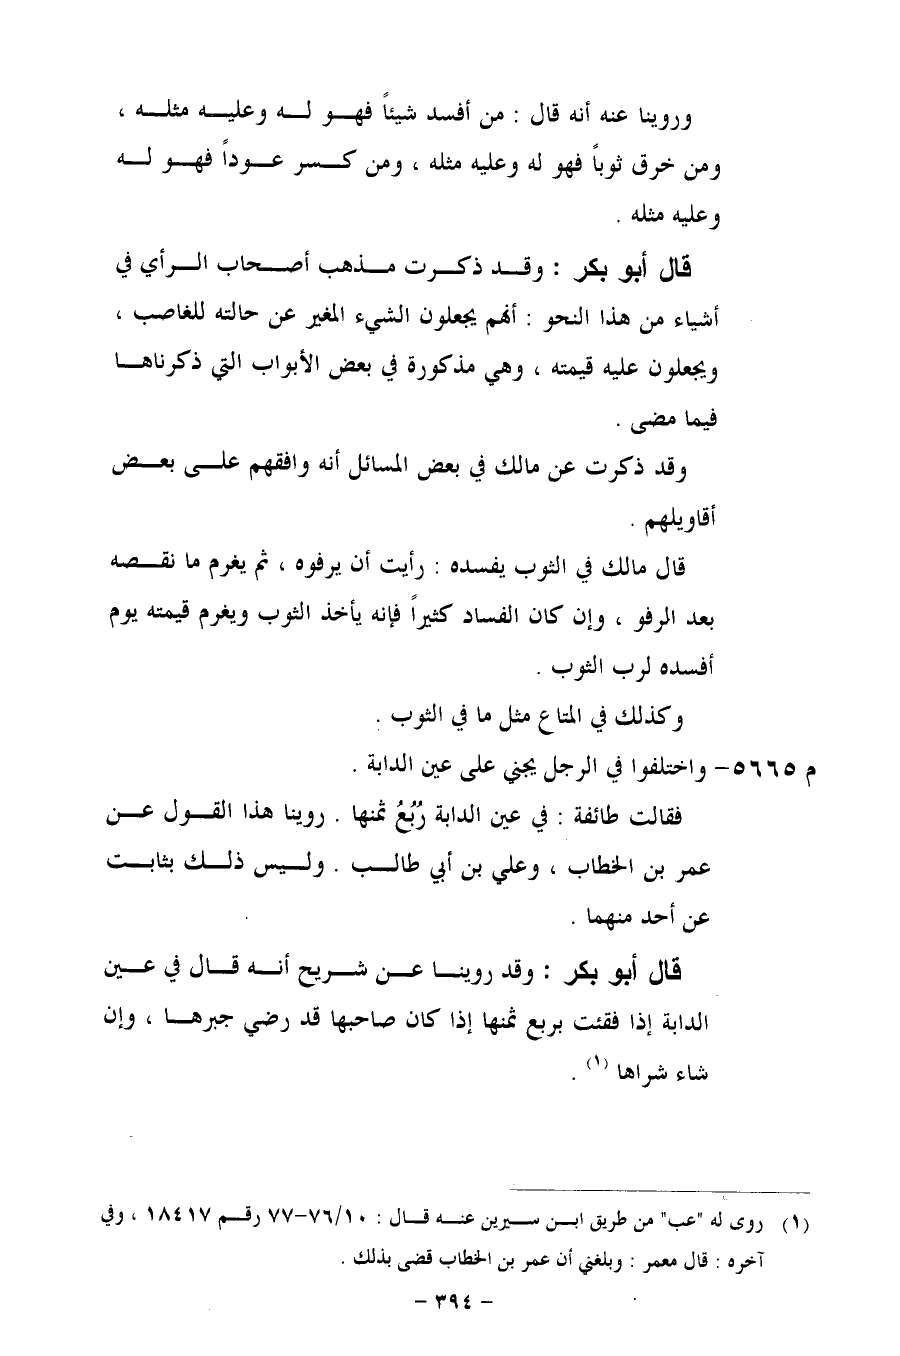 وروينا عنه أنه قال : من أفسد شيئاً فهو له وعليه مثله ،
ومن خرق ثوباً فهو له وعليه مثله ، ومن كسر عوداً فهو له
وعليه مثله .
قال أبو بكر : وقد ذكرت مذهب أصحاب الرأي في
أشياء من هذا النحو : أنهم يجعلون الشيء المغير عن حالته للغاصب ،
ويجعلون عليه قيمته ، وهي مذكورة في بعض الأبواب التي ذكرناها
فيما مضى .
وقد ذكرت عن مالك في بعض المسائل أنه وافقهم على بعض
أقاويلهم .
قال مالك في الثوب يفسده : رأيت أن يرفوه ، ثم يغرم ما نقصه
بعد الرفو ، وإن كان الفساد كثيراً فإنه يأخذ الثوب ويغرم قيمته يوم
أفسده لرب الثوب .
وكذلك في المتاع مثل ما في الثوب .
م ٥٦٦٥- واختلفوا في الرجل يجني على عين الدابة .
فقالت طائفة : في عين الدابة رُبُعُ ثمنها . روينا هذا القول عن
عمر بن الخطاب ، وعلي بن أبي طالب . وليس ذلك بثابت
عن أحد منهما .
قال أبو بكر : وقد روينا عن شريح أنه قال في عين
الدابة إذا فقئت بربع ثمنها إذا كان صاحبها قد رضي جبرها ، وإن
شاء شراها (١) .
(١) روى له "عب" من طريق ابن سيرين عنه قال : ١٠/٧٦-٧٧ رقم ١٨٤١٧ ، وفي
آخره : قال معمر : وبلغني أن عمر بن الخطاب قضى بذلك .
- ٣٩٤ -